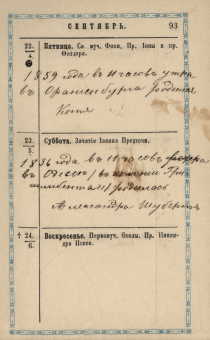 СЕНТЯБРЬ. 93
22. Пятница. Св. муч. Фоки, Пр. Ионы и пр.
4. Феодора.
1859 года въ 11 часовъ утра
въ Ораніенбаумѣ родился
Котя
23. Суббота. Зачатіе Іоанна Предтечи.
5.
1836 года въ 11 часовъ
въ Одессѣ
родилась
Александра Шубертъ
† 24. Воскресенье. Первомуч. Ѳеклы, Пр. Никан-
6. дра Псков.